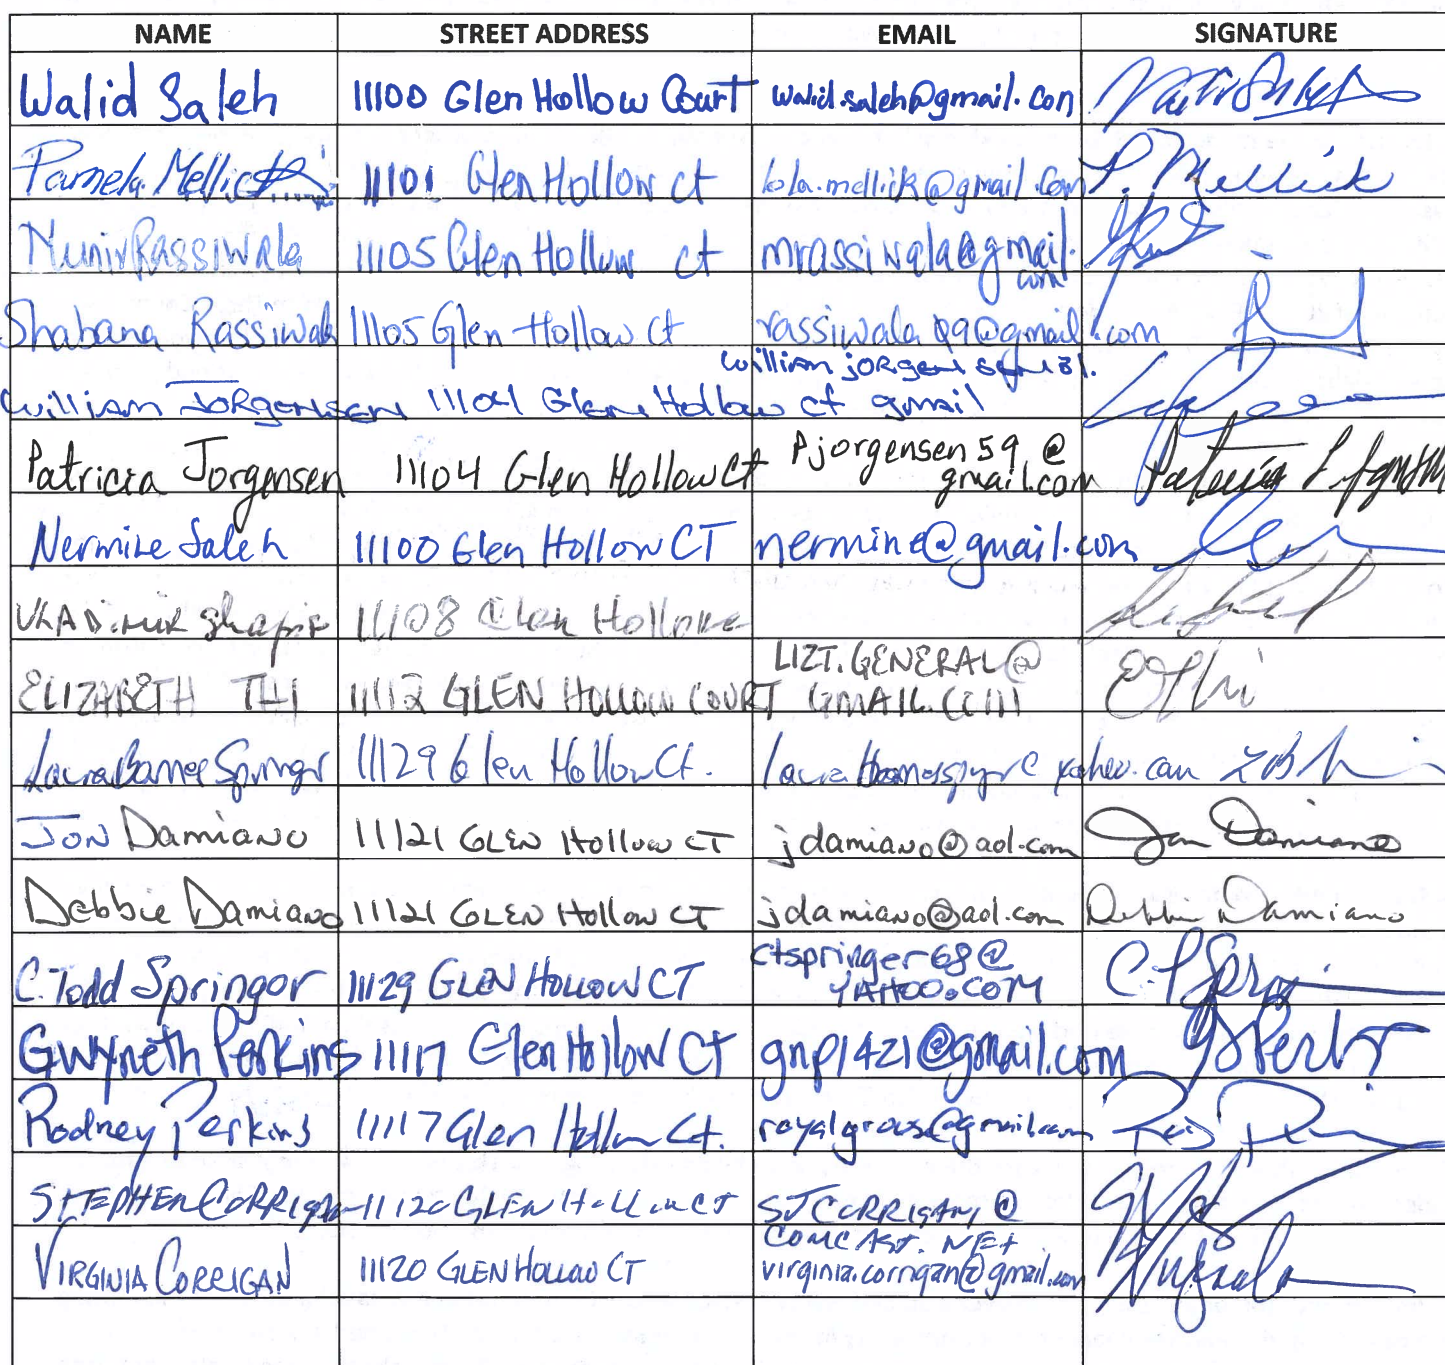 NAME STREET ADDRESS EMAIL SIGNATURE
Walid Saleh 11100 Glen Hollow Court walid.saleh@gmail.con
Pamela Mellick 11101 Glen Hollow ct lola.mellick@gmail.com P. Mellick
Munir Rassiwala 11105 Glen Hollow ct mrassiwala@gmail.
com
Shabana Rassiwala 11105 Glen Hollow ct rassiwala99@gmail.com
William Jorgensen 11104 Glen Hollow ct gmail
Patricia Jorgensen 11104 Glen Hollow Ct Pjorgensen59@
gmail.com
Nermine Saleh 11100 Glen Hollow CT nermine@gmail.com
VLADIMIR Shapir 11108 Glen Hollow
LIZT.GENERAL@
ELIZABETH THI 11112 GLEN HOLLOW COURT GMAIL.COM
Laura Barnes Springer 11129 Glen Hollow Ct.
JON Damiano 11121 GLEN Hollow CT jdamiano@aol.com Jon Damiano
Debbie Damiano 11121 GLEN Hollow CT jdamiano@aol.com Debbie Damiano
ctspringer68@
C. Todd Springer 11129 GLEN HOLLOW CT YAHOO.COM
Gwyneth Perkins 11117 Glen Hollow Ct gnp1421@gmail.com
Rodney Perkins 11117 Glen Hollow Ct.
STEPHEN CORRIGAN 11120 GLEN Hollow CT SJCORRIGAN1@
COMCAST.NET
VIRGINIA CORRIGAN 11120 GLEN HOLLOW CT virginia.corrigan@gmail.com